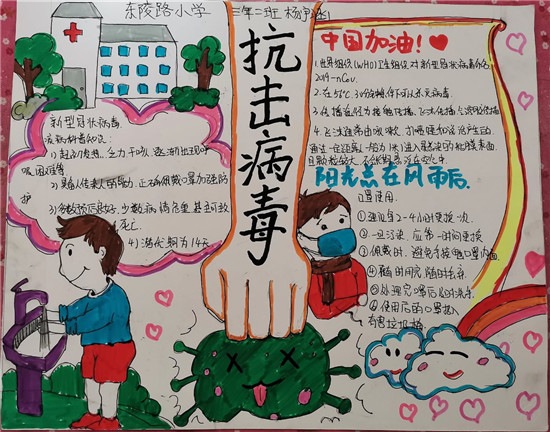 东陵路小学 三年二班
抗击病毒
新型冠状病毒
疾病科普知识:
1)起初发热、乏力干咳、逐渐出现呼
吸困难等
2)具备人传染人的能力,正确佩戴口罩加强防
护
3)多数预后良好,少数病情危重甚可致
死亡
4)潜伏期为14天
中国加油!
1.世界组织(WHO)卫生组织对新型冠状病毒命名
2019-nCov.
2.在56℃、30分钟条件下可以杀灭病毒.
3.传播途径为接触传播、飞沫传播
4.飞沫通常由咳嗽、打喷嚏
通过一定距离(一般为1米)进入易感的粘膜表面.
阳光总在风雨后.
口罩使用.
①建议每2-4小时更换一次.
②一旦污染,应第一时间更换
③佩戴时,避免手接触口罩内面.
④随时用完随时丢弃.
⑤处理完口罩后及时洗手
⑥使用后的口罩投入
有害垃圾桶.